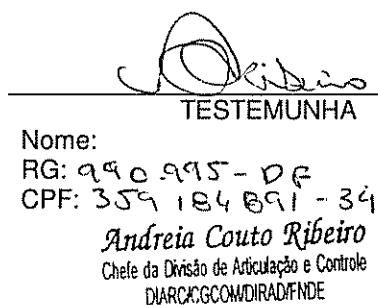 Ribeiro
TESTEMUNHA
Nome:
RG: 990.995-DF
CPF: 359 184 691-34
Andreia Couto Ribeiro
Chefe da Divisão de Articulação e Controle
DIARC/CGCOM/DIRAD/FNDE